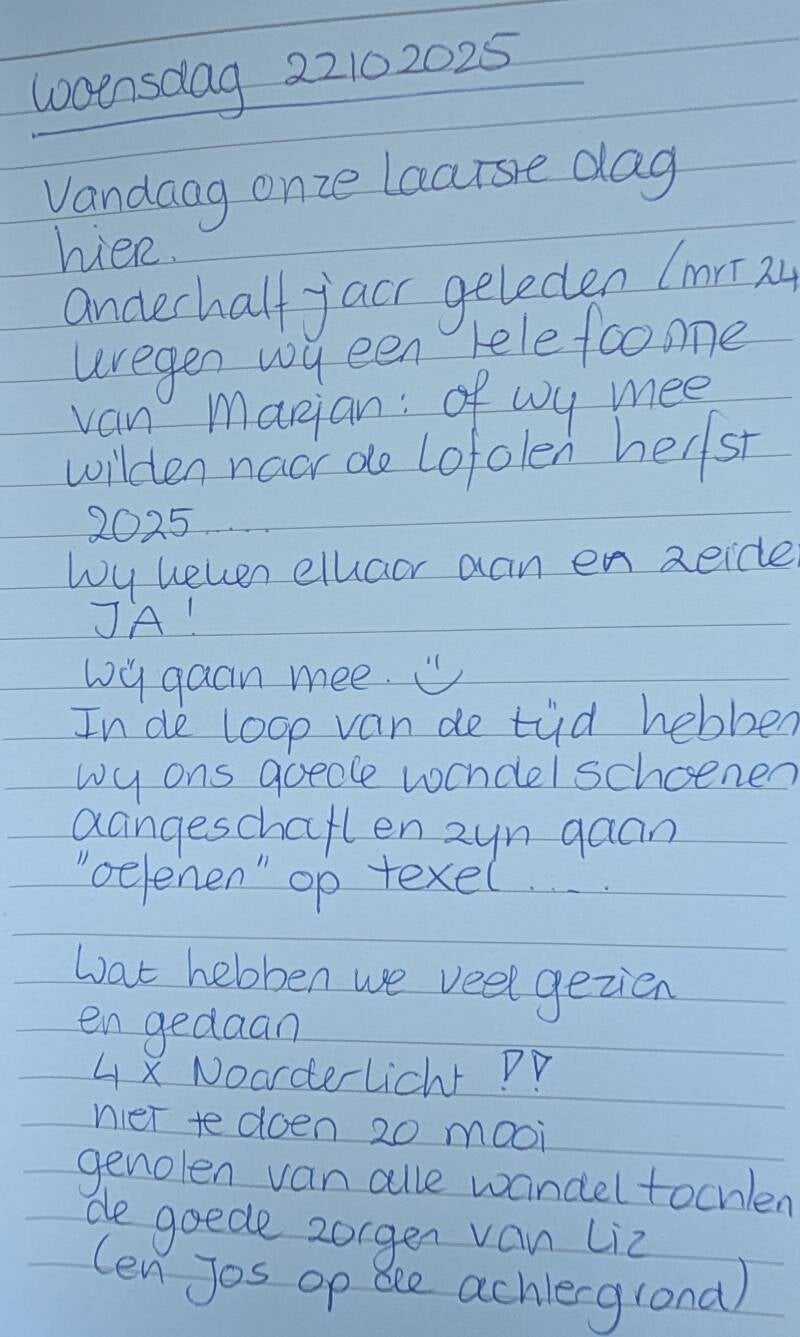 Woensdag 22102025
Vandaag onze laatste dag
hier.
anderhalf jaar geleden (mrt 24
kregen wij een telefoonne
van Marjan: of wij mee
wilden naar de Lofoten herfst
2025.....
Wij keken elkaar aan en zeiden
JA!
Wij gaan mee. ☺
In de loop van de tijd hebben
wij ons goede wandelschoenen
aangeschaft en zijn gaan
"oefenen" op texel.....
Wat hebben we veel gezien
en gedaan
4 x Noorderlicht !!
niet te doen zo mooi
genoten van alle wandeltochten
de goede zorgen van Liz
(en Jos op de achtergrond)